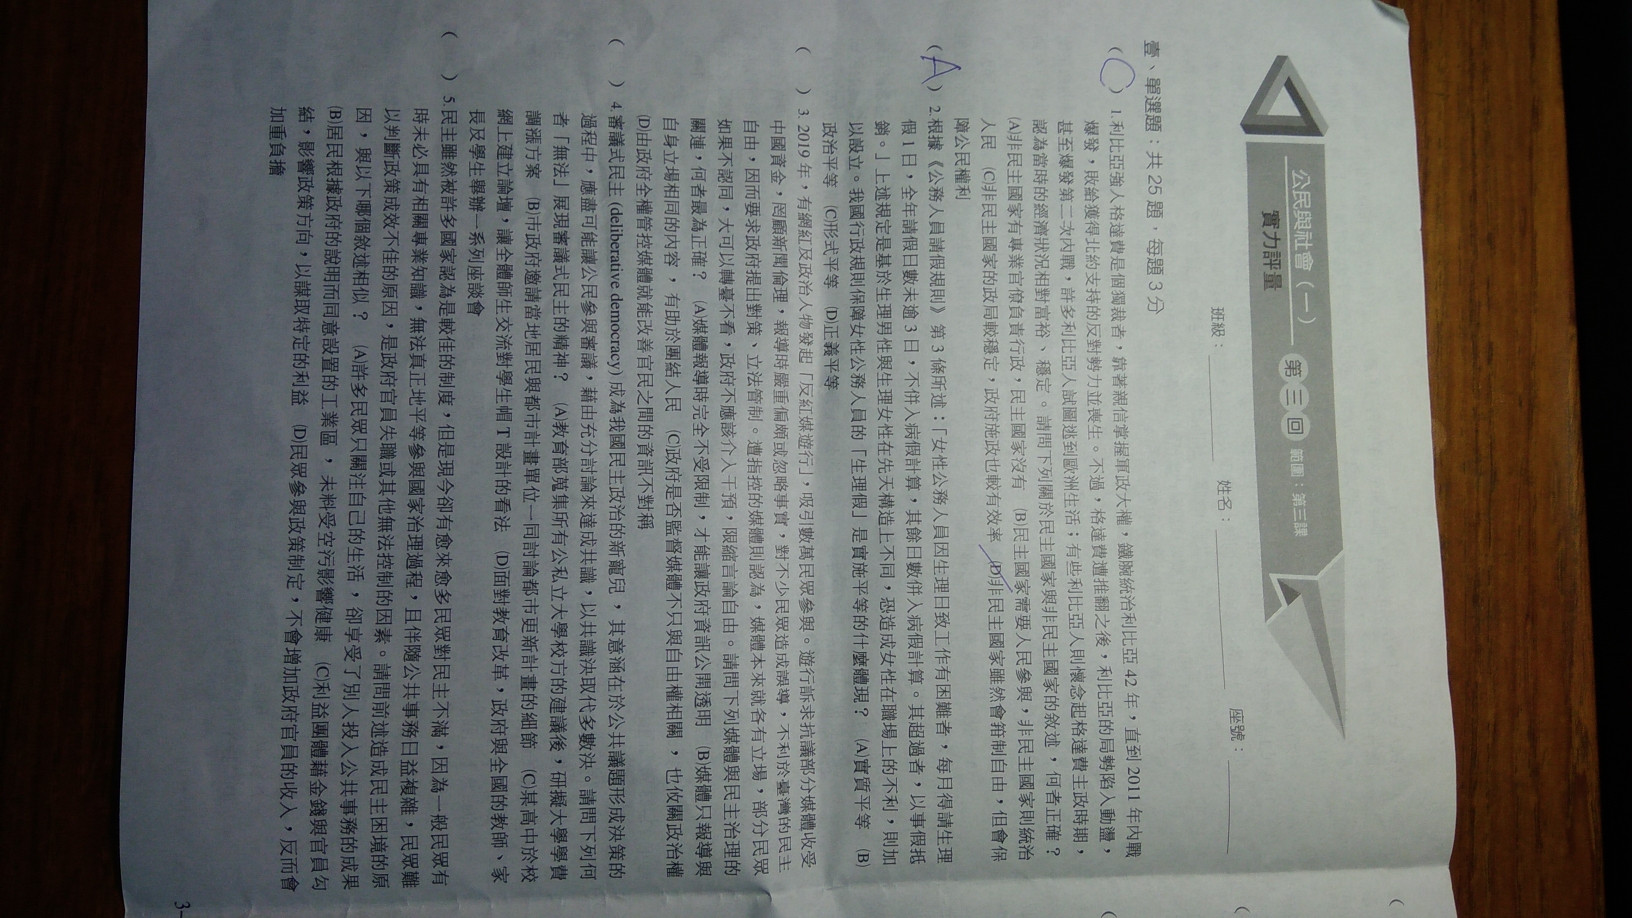 公民與社會（一） 第三回 範圍：第三課
實力評量
班級： 姓名： 座號：
壹、單選題：共 25 題，每題 3 分
( C ) 1.利比亞強人格達費是個獨裁者，靠著親信掌握軍政大權，鐵腕統治利比亞 42 年，直到 2011 年內戰
爆發，敗給獲得北約支持的反對勢力並喪生。不過，格達費遭推翻之後，利比亞的局勢陷入動盪，
甚至爆發第二次內戰，許多利比亞人試圖逃到歐洲生活；有些利比亞人則懷念起格達費主政時期，
認為當時的經濟狀況相對富裕、穩定。請問下列關於民主國家與非民主國家的敘述，何者正確？
(A)非民主國家有專業官僚負責行政，民主國家沒有 (B)民主國家需要人民參與，非民主國家則統治
人民 (C)非民主國家的政局較穩定，政府施政也較有效率 (D)非民主國家雖然會箝制自由，但會保
障公民權利
( A ) 2.根據《公務人員請假規則》第 3 條所述：「女性公務人員因生理日致工作有困難者，每月得請生理
假 1 日，全年請假日數未逾 3 日，不併入病假計算，其餘日數併入病假計算。其超過者，以事假抵
銷。」上述規定是基於生理男性與生理女性在先天構造上不同，恐造成女性在職場上的不利，則加
以設立。我國行政規則保障女性公務人員的「生理假」是實施平等的什麼體現？ (A)實質平等 (B)
政治平等 (C)形式平等 (D)正義平等
( ) 3. 2019 年，有網紅及政治人物發起「反紅媒遊行」，吸引數萬民眾參與。遊行訴求抗議部分媒體收受
中國資金，罔顧新聞倫理，報導時嚴重偏頗或忽略事實，對不少民眾造成誤導，不利於臺灣的民主
自由，因而要求政府提出對策、立法管制。遭指控的媒體則認為，媒體本來就各有立場，部分民眾
如果不認同，大可以轉臺不看，政府不應該介入干預，限縮言論自由。請問下列媒體與民主治理的
關連，何者最為正確？ (A)媒體報導時完全不受限制，才能讓政府資訊公開透明 (B)媒體只報導與
自身立場相同的內容，有助於團結人民 (C)政府是否監督媒體不只與自由權相關，也攸關政治權
(D)由政府全權管控媒體就能改善官民之間的資訊不對稱
( ) 4.審議式民主 (deliberative democracy) 成為我國民主政治的新寵兒，其意涵在於公共議題形成決策的
過程中，應盡可能讓公民參與審議，藉由充分討論來達成共識，以共識決取代多數決。請問下列何
者「無法」展現審議式民主的精神？ (A)教育部蒐集所有公私立大學校方的建議後，研擬大學學費
調漲方案 (B)市政府邀請當地居民與都市計畫單位一同討論都市更新計畫的細節 (C)某高中於校
網上建立論壇，讓全體師生交流對學生帽 T 設計的看法 (D)面對教育改革，政府與全國的教師、家
長及學生舉辦一系列座談會
( ) 5.民主雖然被許多國家認為是較佳的制度，但是現今卻有愈來愈多民眾對民主不滿，因為一般民眾有
時未必具有相關專業知識，無法真正地平等參與國家治理過程，且伴隨公共事務日益複雜，民眾難
以判斷政策成效不佳的原因，是政府官員失職或其他無法控制的因素。請問前述造成民主困境的原
因，與以下哪個敘述相似？ (A)許多民眾只關注自己的生活，卻享受了別人投入公共事務的成果
(B)居民根據政府的說明而同意設置的工業區，未料受空污影響健康 (C)利益團體藉金錢與官員勾
結，影響政策方向，以謀取特定的利益 (D)民眾參與政策制定，不會增加政府官員的收入，反而會
加重負擔
3-